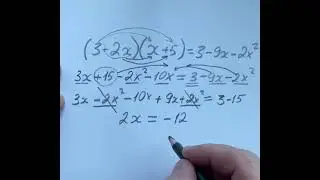 (3+2x)(x+5)=3-9x-2x²
3x+15-2x²-10x=3-9x-2x²
3x-2x²-10x+9x+2x²=3-15
2x=-12